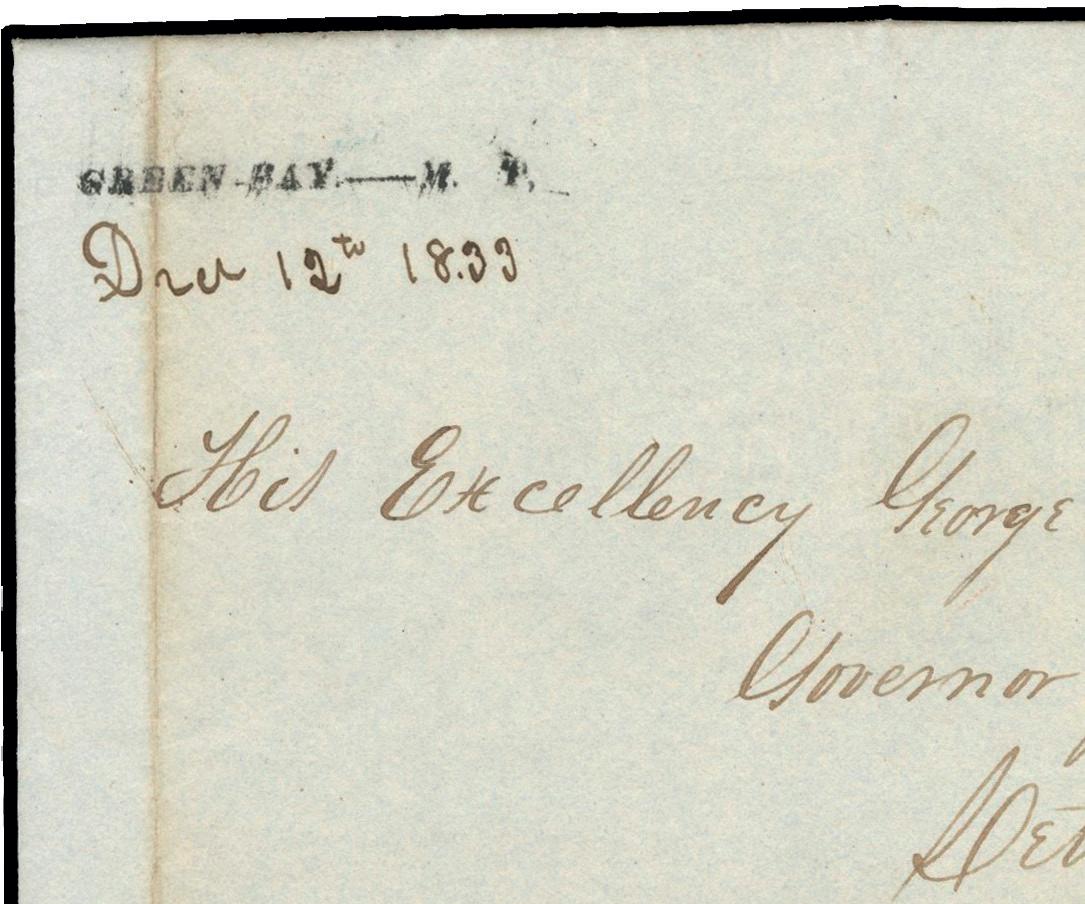 GREEN BAY.—M. T.
Decr 12th 1833
His Excellency George
Governor
Det